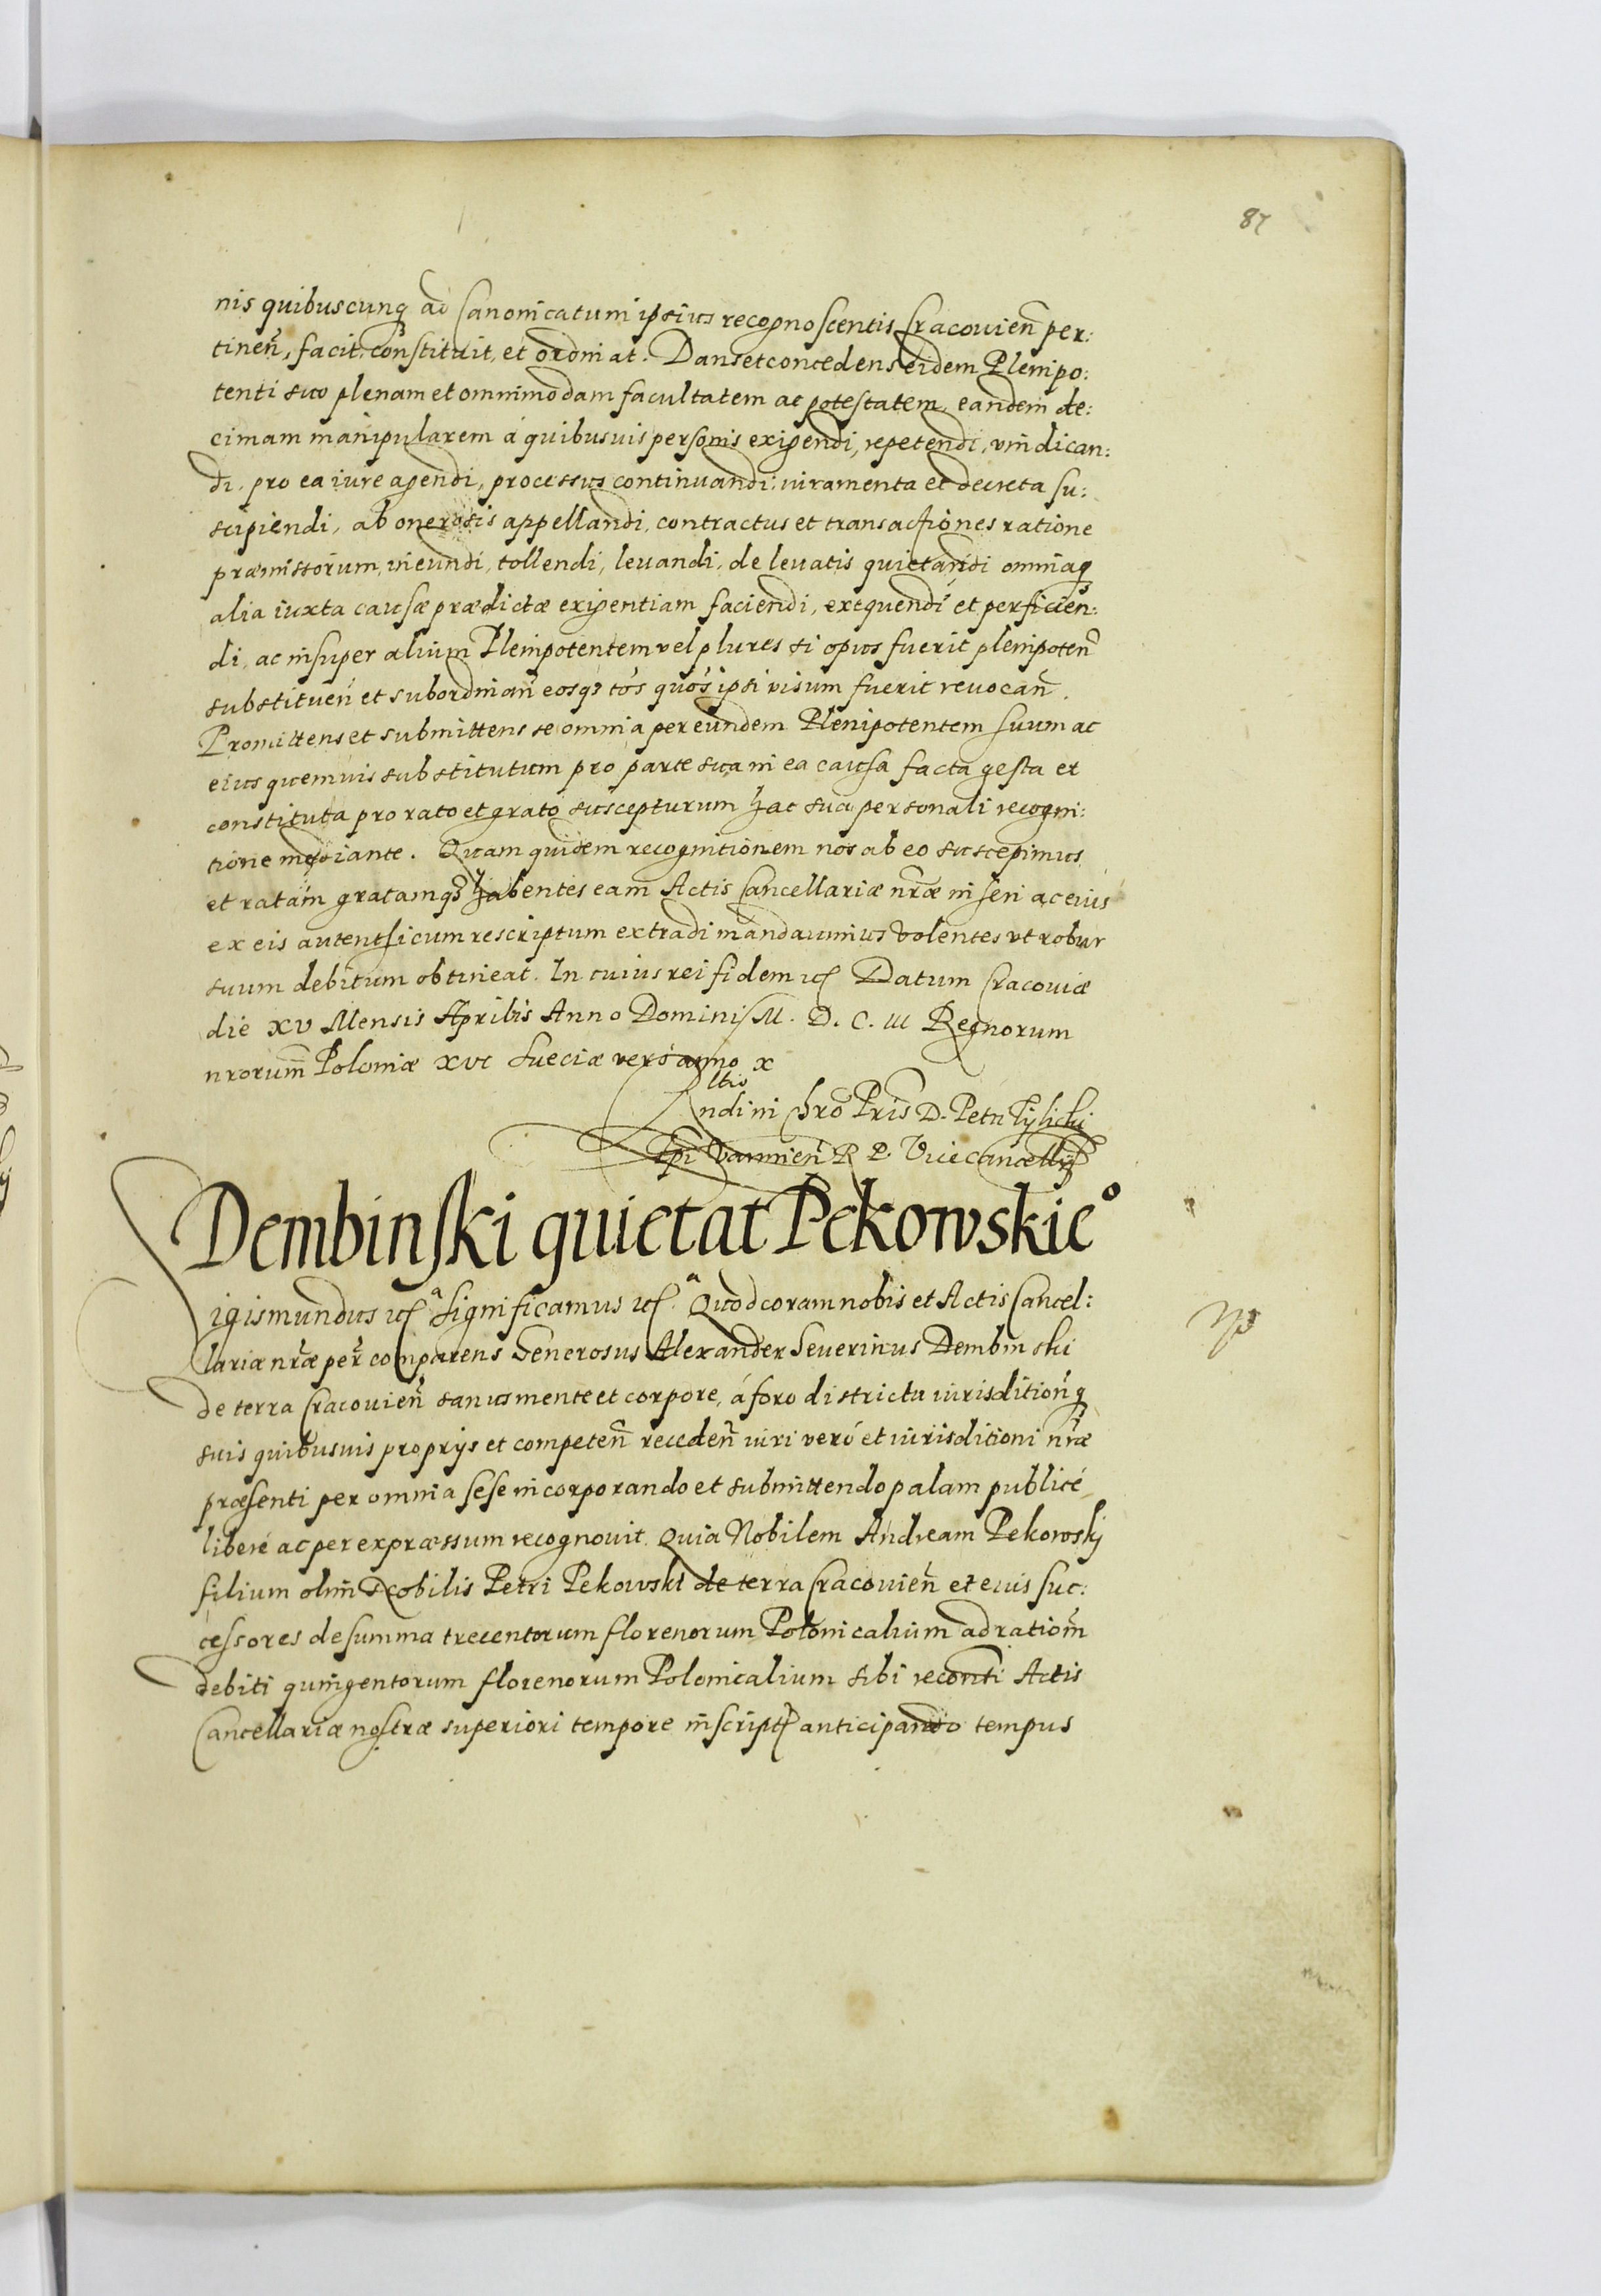 87
nis quibuscunq ad Canonicatum ipsius recognoscentis Cracouien̄ per:
tinen̄, facit, constituit, et ordinat. Dans et concedens eidem Plenipo:
tenti suo plenam et omnimodam facultatem ac potestatem, eandem de:
cimam manipularem á quibusuis personis exigendi, repetendi, vindican:
di, pro ea iure agendi, processus continuandi, iuramenta et decreta su:
scipiendi, ab onerosis appellandi, contractus et transactiones ratione
præmissorum, ineundi, tollendi, leuandi, de leuatis quietandi omniaq
alia iuxta causæ prædictæ exigentiam faciendi, exequendi et perficien:
di, ac insuper alium Plenipotentem vel plures si opus fuerit plenipoten̄
substituen̄ et subordinan̄ eosq tos quos ipsi visum fuerit reuocan̄.
Promittens et submittens se omnia per eundem Plenipotentem suum ac
eius quemuis substitutum pro parte sua in ea causa facta gesta et
constituta pro rato et grato suscepturum hac sua personali recogni:
tione mediante. Quam quidem recognitionem nos ab eo suscepimus
et ratam gratamq habentes eam Actis Cancellariæ nr̄æ inseri ac eius
ex eis autenthicum rescriptum extradi mandauimus Volentes vt robur
suum debitum obtineat. In cuius rei fidem etc Datum Cracouiæ
die XV Mensis Aprilis Anno Domini M. D. C. III Regnorum
nrorum̄ Poloniæ XVI Sueciæ vero anno X
Rltio
ndi in Chro Pris D. Petri Tylicki
Epi Varmien̄ R P. Vicecancellr
Dembinski quietat Pekowskie°
igismundus etc Significamus etc Quod coram nobis et Actis Cancel:
lariæ nr̄æ per̄ comparens Generosus Alexander Seuerinus Dembinski
de terra Cracouien̄ sanus mente et corpore, á foro districtu iurisdition̄q
suis quibusuis proprijs et competen̄ receden̄ iuri veró et iurisditioni nr̄æ
præsenti per omnia sese incorporando et submittendo palam publicé
liberé ac per expræssum recognouit. Quia Nobilem Andream Pekowskj
filium olim Nobilis Petri Pekowski de terra Cracouien̄ et eius suc:
cessores de summa trecentorum florenorum Polonicalium ad ration̄m
debiti quingentorum florenorum Polonicalium sibi reconti Actis
Cancellariæ nostræ superiori tempore inscript anticipando tempus